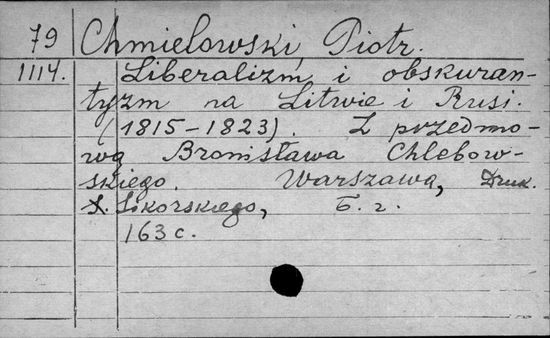 79 Chmielowski, Piotr.
1114. Liberalizm i obskuran-
tyzm na Litwie i Rusi.
(1815-1823). Z przedmo-
wą Bronisława Chlebow-
skiego. Warszawa, Druk.
S. Sikorskiego, b. r.
163 c.